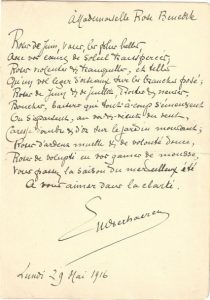 à Mademoiselle Rose Benedikt
Roses de Juin, vous, les plus belles,
Avec vos cœurs de soleil transpercés;
Roses violentes et tranquilles, et telles
Qu'un vol léger d'oiseaux sur les branches posés;
Roses de Juin et de Juillet, droites et neuves,
Bouches, baisers qui tout à coup s'émeuvent
Ou s'apaisent, au va-et-vient du vent,
Caresse d'ombre et d'or, sur le jardin mouvant;
Roses d'ardeur muette et de volonté douce,
Roses de volupté en vos gaines de mousse,
Vous passez la saison du merveilleux été
A vous aimer dans la clarté.
EVerhaeren
Lundi 29 Mai 1916